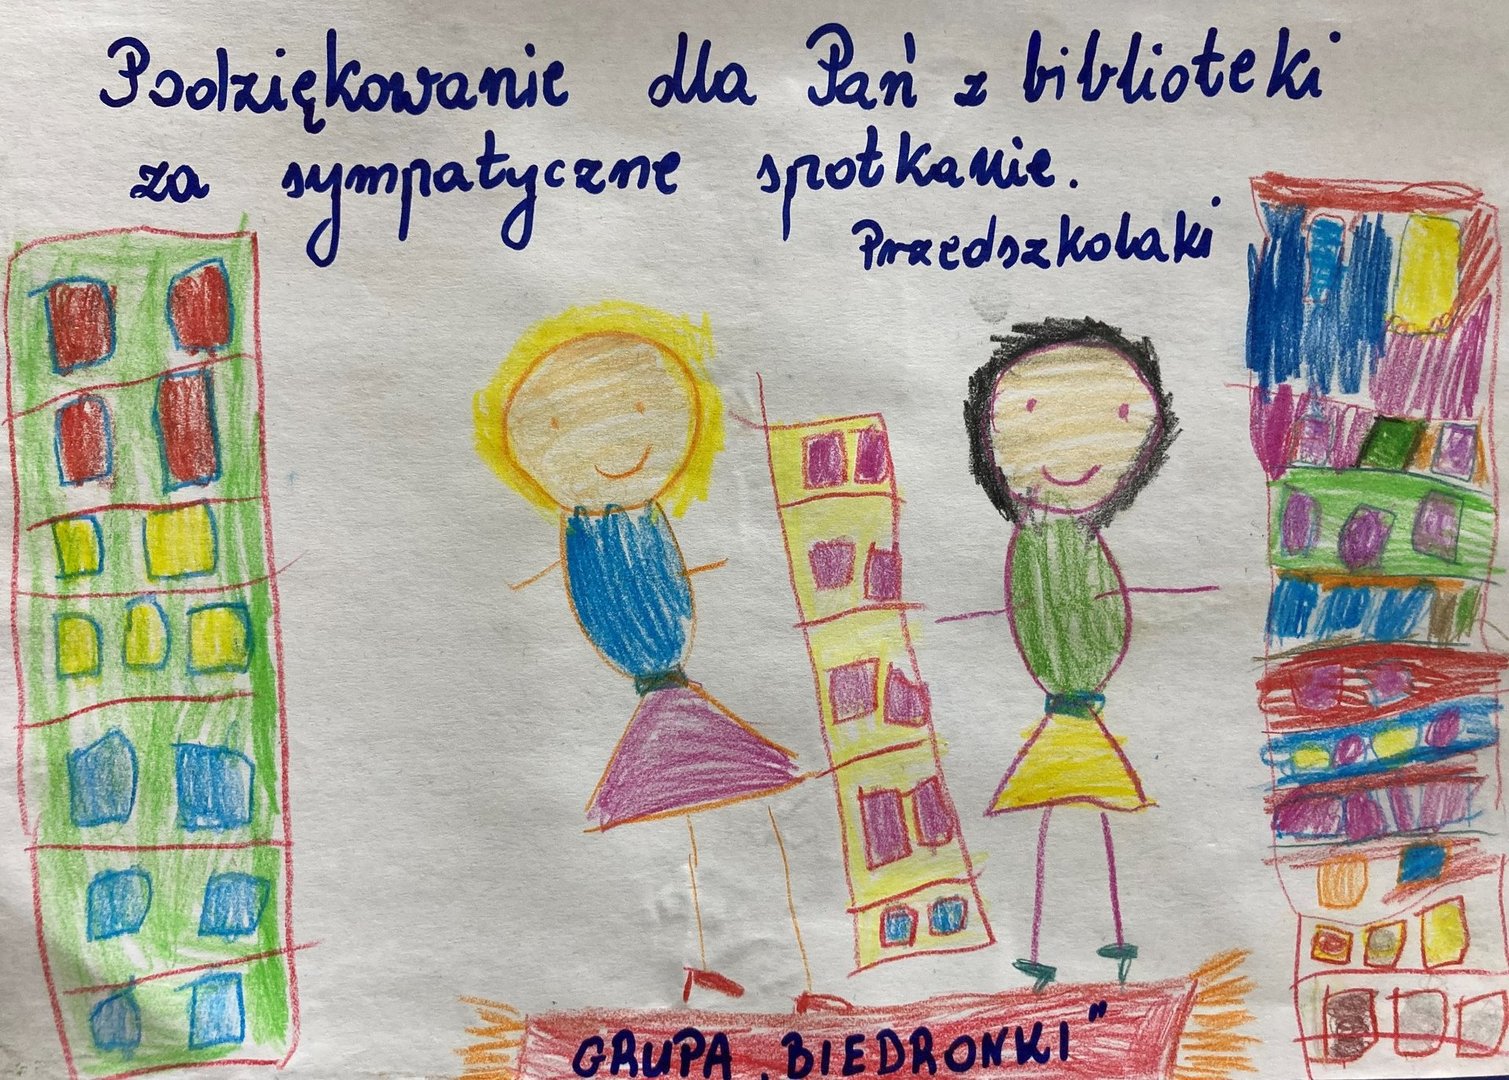 Podziękowanie dla Pań z biblioteki
za sympatyczne spotkanie.
Przedszkolaki
GRUPA „BIEDRONKI"